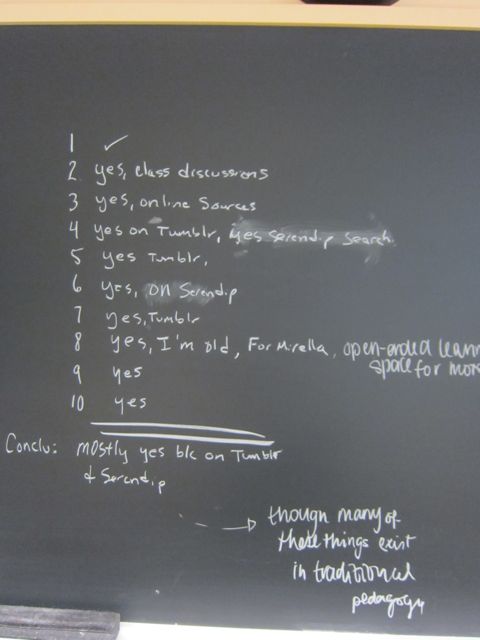 1 ✓
2 yes, class discussions
3 yes, online Sources
4 yes on Tumblr, yes Serendip Search
5 yes Tumblr,
6 yes, on Serendip
7 yes, Tumblr
8 yes, I'm old, For Mirella, open-ended learn
space for more
9 yes
10 yes
Conclu: mostly yes b/c on Tumblr
& Serendip
→ though many of
these things exist
in traditional
pedagogy